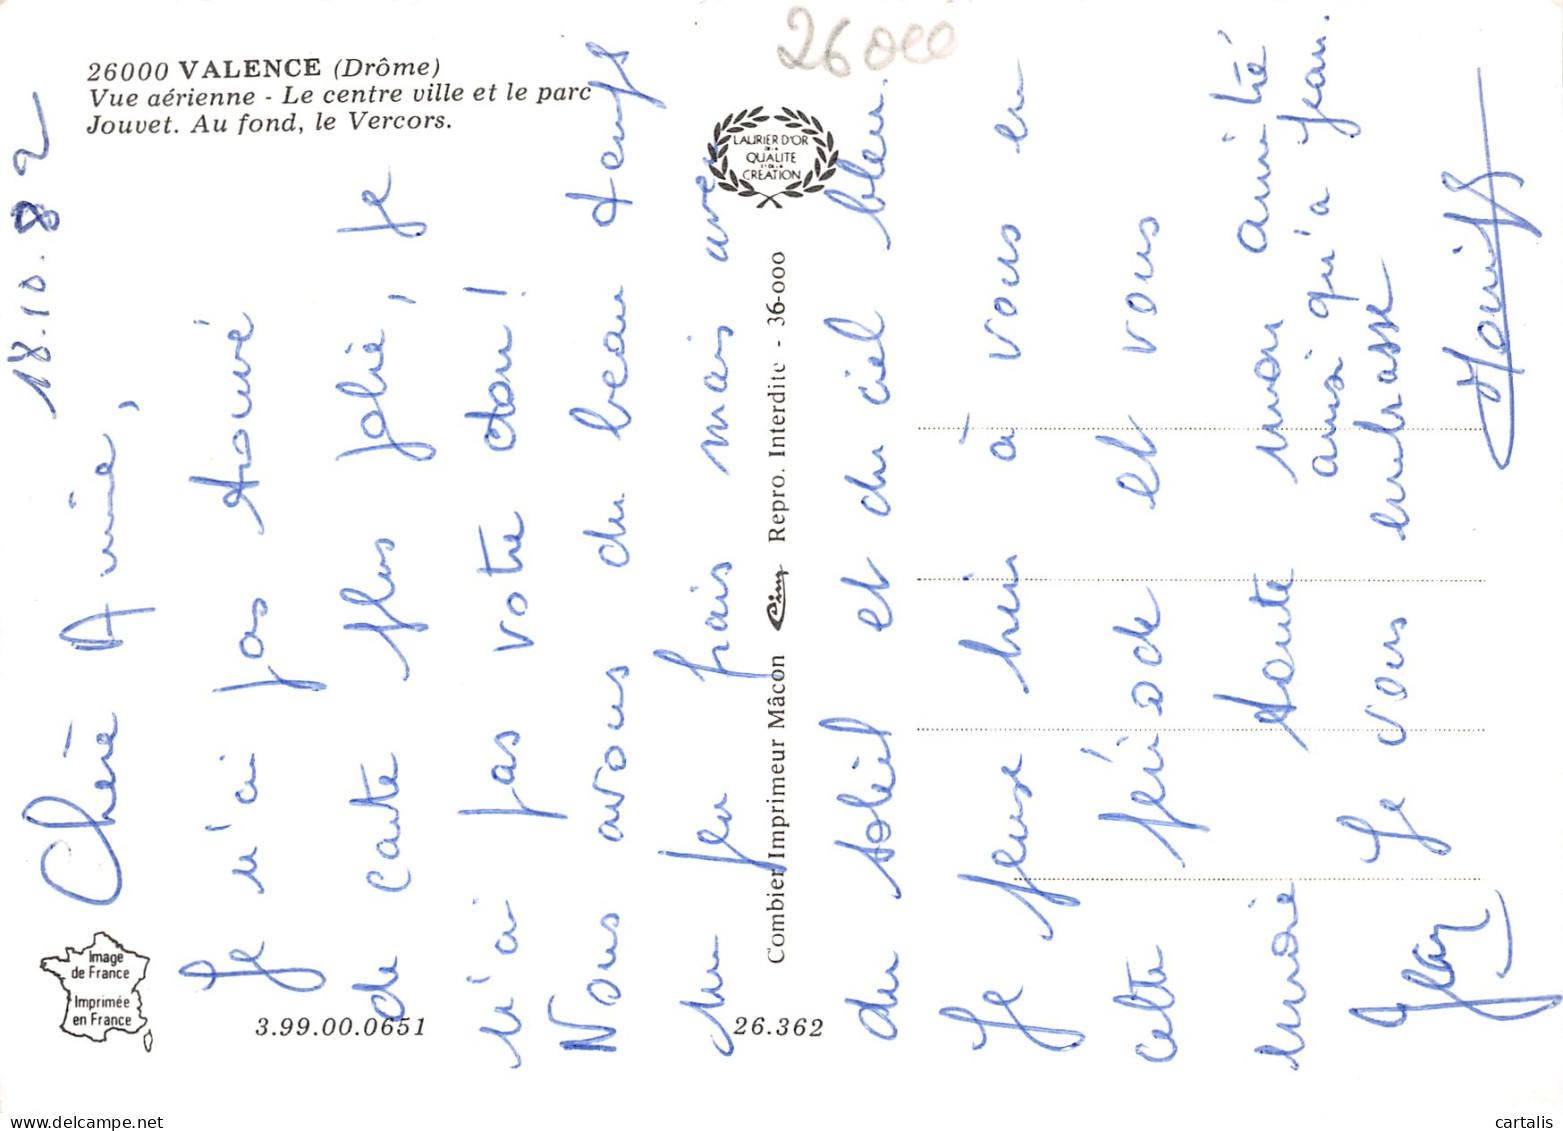 26000 VALENCE (Drôme)
Vue aérienne - Le centre ville et le parc
Jouvet. Au fond, le Vercors.
26000
LAURIER D'OR
DE LA
QUALITE
ET DE LA
CREATION
Combier Imprimeur Mâcon Cim Repro. Interdite - 36-000
Image
de France
Imprimée
en France
3.99.00.0651
26.362
18.10.82
Chère Amie,
Je n'ai pas trouvé
de carte plus jolie, je
n'ai pas votre don!
Nous avons du beau temps
un peu frais mais avec
du soleil et du ciel bleu.
Je pense bien à vous en
cette période et vous
envoie toute mon amitié
ainsi qu'à Jean.
Je vous embrasse
Jean
cartalis